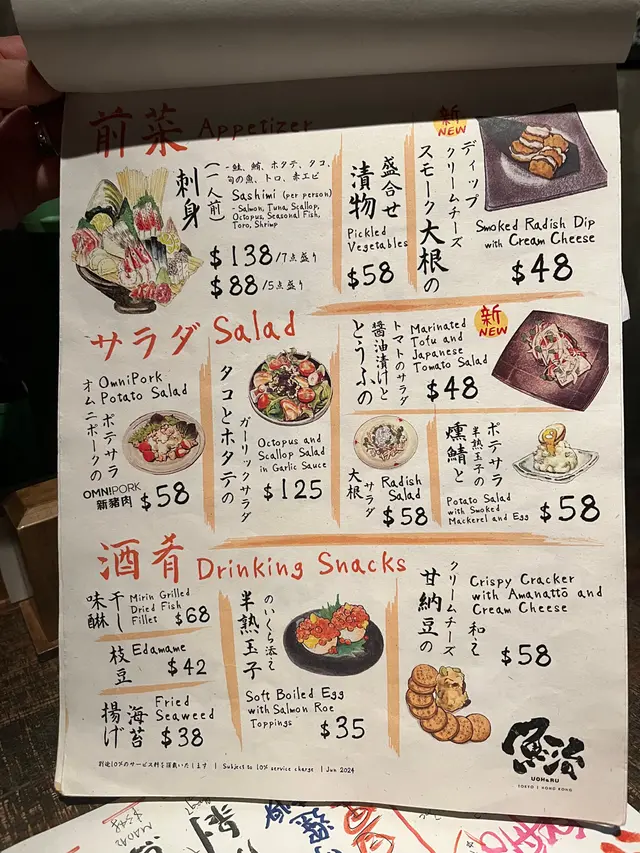 前菜 Appetizer
刺身
(一人前)
-鮭、鮪、ホタテ、タコ、
旬の魚、トロ、赤エビ
Sashimi (per person)
-Salmon, Tuna, Scallop,
Octopus, Seasonal Fish,
Toro, Shrimp
$138/7点盛り
$88/5点盛り
盛合せ
漬物
Pickled
Vegetables
$58
新
NEW
ディップ
クリームチーズ
スモーク大根の
Smoked Radish Dip
with Cream Cheese
$48
サラダ Salad
OmniPork
Potato Salad
ポテサラ
オムニポークの
OMNIPORK
新豬肉
$58
ガーリックサラダ
タコとホタテの
Octopus and
Scallop Salad
in Garlic Sauce
$125
トマトのサラダ
醤油漬けと
とうふの
Marinated
Tofu and
Japanese
Tomato Salad
$48
新
NEW
サラダ
大根
Radish
Salad
$58
ポテサラ
半熟玉子の
燻鯖と
Potato Salad
with Smoked
Mackerel and Egg
$58
酒肴 Drinking Snacks
干し
味醂
Mirin Grilled
Dried Fish
Fillet
$68
枝豆
Edamame
$42
海苔
揚げ
Fried
Seaweed
$38
のいくら添え
半熟玉子
Soft Boiled Egg
with Salmon Roe
Toppings
$35
クリームチーズ和え
甘納豆の
Crispy Cracker
with Amanatto and
Cream Cheese
$58
別途10%のサービス料を頂戴いたします | Subject to 10% service charge | Jun 2024
魚治
UOHARU
TOKYO | HONG KONG